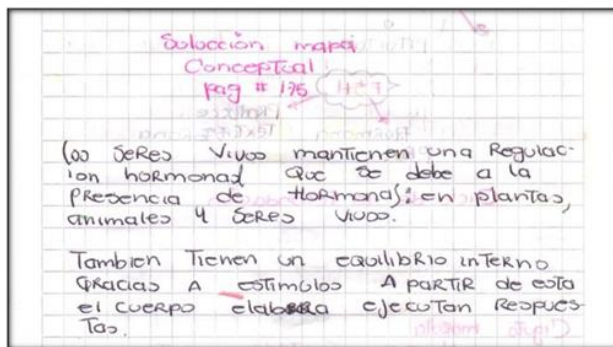 Solucción mapa
Conceptual
pag # 175
los seres vivos mantienen una Regulac-
ion hormonas que se debe a la
presencia de Hormonas: en plantas,
animales y seres vivos.
Tambien Tienen un equilibrio interno
Gracias A estimulos A partir de esta
el cuerpo elabora ejecutan Respues
Tas.